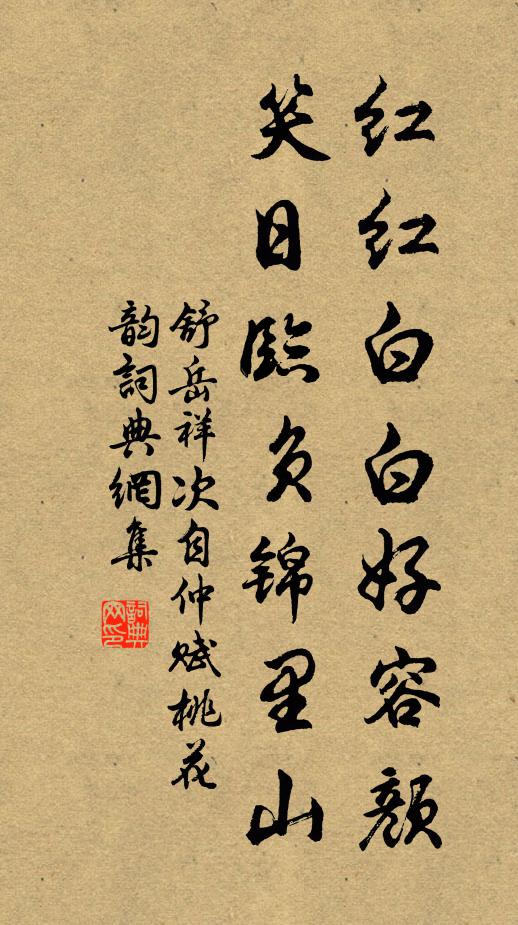 红红白白好容颜
笑日临负锦里山
舒岳祥次自仲赋桃花
韵词典网集
词典网印